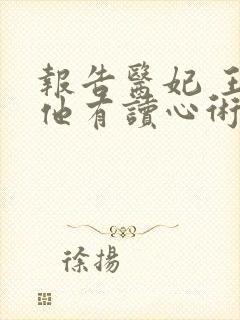 報告醫妃 王
他有讀心術
徐揚